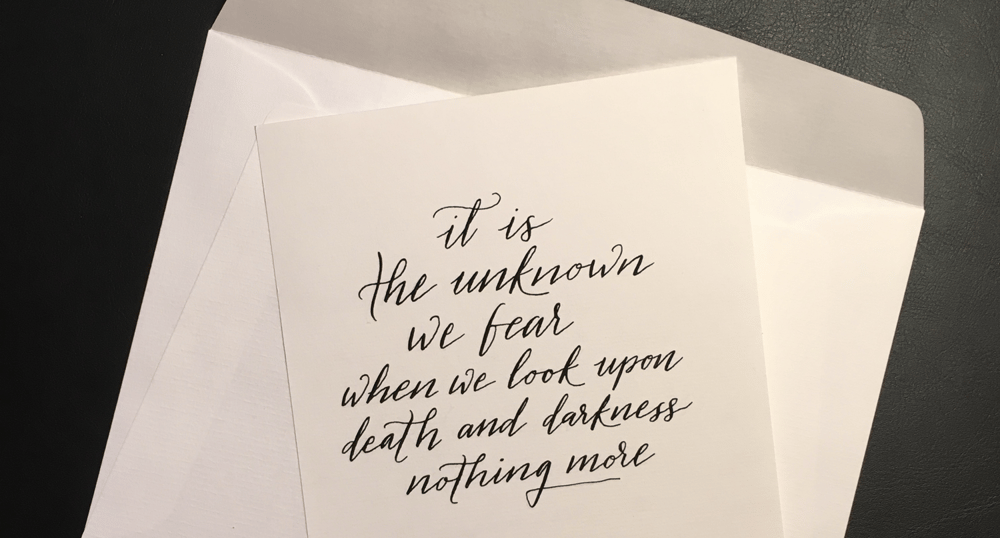 it is
the unknown
we fear
when we look upon
death and darkness
nothing more